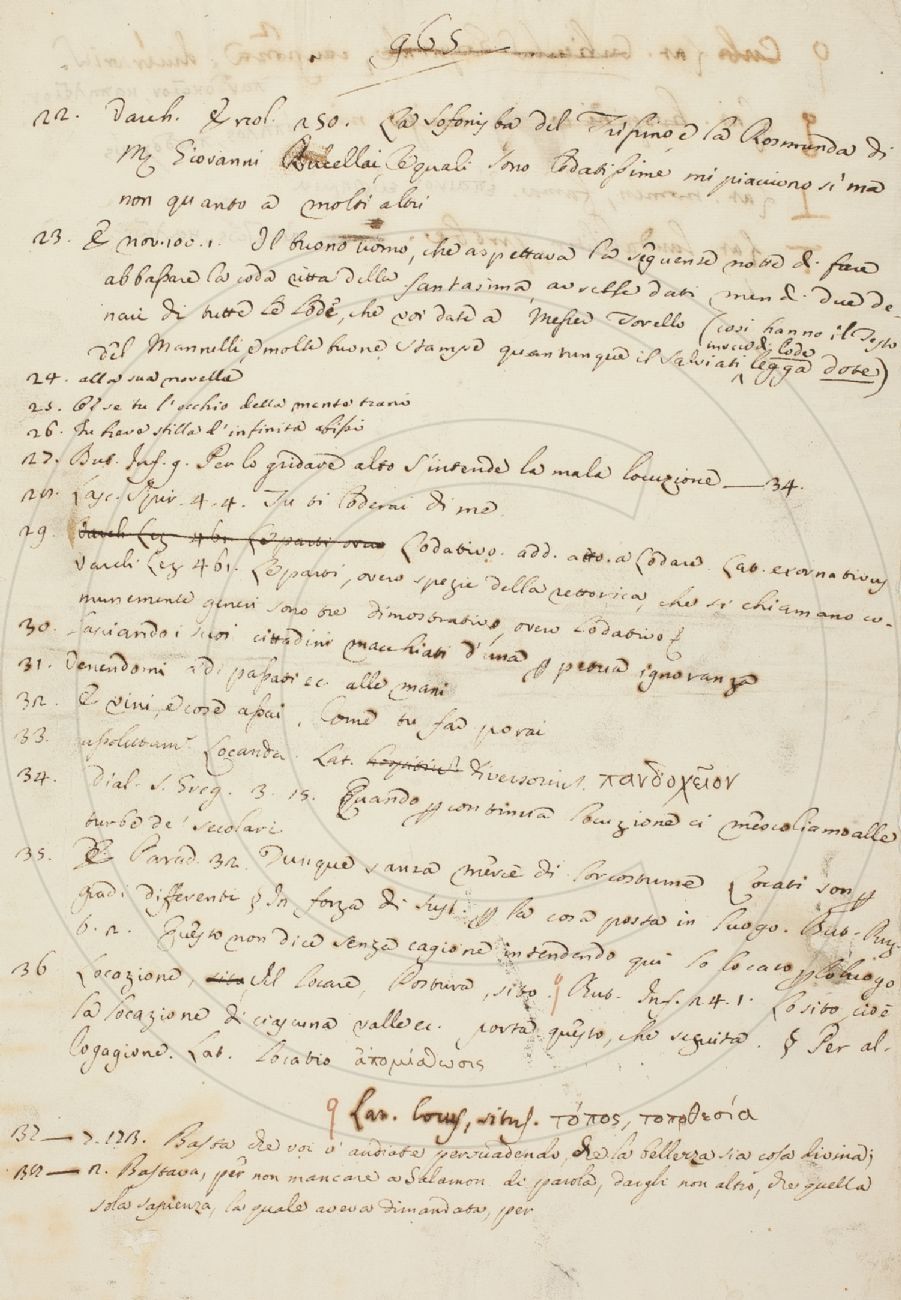 965
22. Varch. Ercol. 250. La Sofonisba del Trissino e la Rosmunda di
M. Giovanni Rucellai, le quali sono lodatissime mi piacciono sì ma
non quanto a molti altri
23. E nov. 100. 1. Il buono uomo, che aspettava la seguente notte di fare
abbassare la coda ritta della fantasima avrebbe dati men di due de-
nari di tutte le lode, che voi date a Messer Torello (così hanno il Testo
del Mannelli, e molte buone stampe quantunque il Salviati in vece di lode legga dote)
24. alla sua novella
25. Or se tu l'occhio della mente trani
26. In breve stilla d'infiniti abissi
27. But. Inf. 9. Per lo gridare alto s'intende la mala locuzione — 34.
28. Lasc. Spir. 4. 4. Tu ti loderai di me
29. Varch. Lez. 461. Le parti ovve Lodativo. add. atto a lodare Lat. exornativus
Varch. Lez. 461. Le parti, overo spezie della rettorica, che si chiamano co-
munemente generi sono tre dimostrativo, overo lodativo
30. Lasciando i suoi cittadini macchiati d'una ppetua ignoranza
31. Venendomi a dì passati ec. alle mani
32. E vini, e cose assai, come tu far porai
33. Locanda. Lat. diversorium. πανδοχεῖον
34. Dial. S. Greg. 3. 15. Quando p continua locuzione ci mescoliamo alle
turbe de' secolari
35. E Parad. 32. Dunque sanza mercè di lor costume Locati son p
gradi differenti § In forza di sust. p la cosa posta in luogo. But. Purg.
6. 2. Questo non dice senza cagione intendendo qui lo locato p lo luogo
36. Locazione, Il locare, Postura, sito. ϙ But. Inf. 24. 1. Lo sito, cioè
la locazione di ciascuna valle ec. porta questo, che seguita. § Per al-
logagione. Lat. locatio ἀπομίσθωσις
ϙ Lat. locus, situs. τόπος, τοποθεσία
37 — 2. 123. Basta che voi v'andiate persuadendo, che la bellezza sia cosa divina;
38 — 2. Bastava, per non mancare a Salamon di parola, dargli non altro, che quella
sola sapienza, la quale aveva dimandata, per